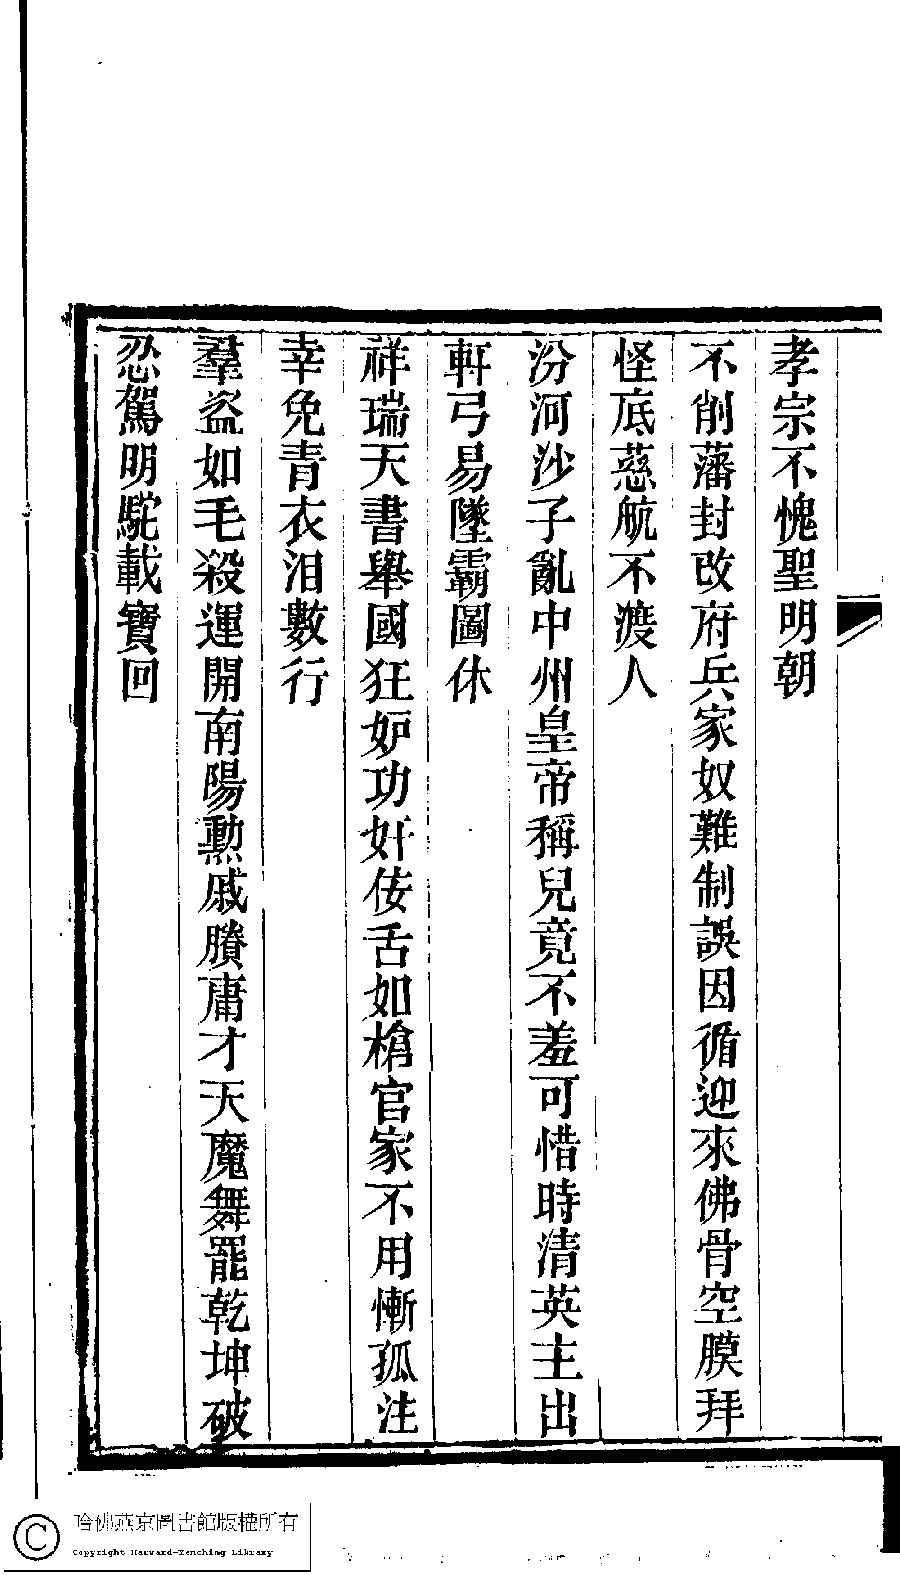 孝宗不愧聖明朝
不削藩封改府兵家奴難制誤因循迎來佛骨空膜拜
怪底慈航不渡人
汾河沙子亂中州皇帝稱兒竟不羞可惜時清英主出
軒弓易墜霸圖休
祥瑞天書舉國狂妒功奸佞舌如槍官家不用慚孤注
幸免青衣泪數行
羣盗如毛殺運開南陽勲戚賸庸才天魔舞罷乾坤破
忍駕明駝載寶回
哈佛燕京圖書館版權所有
Copyright Harvard-Yenching Library